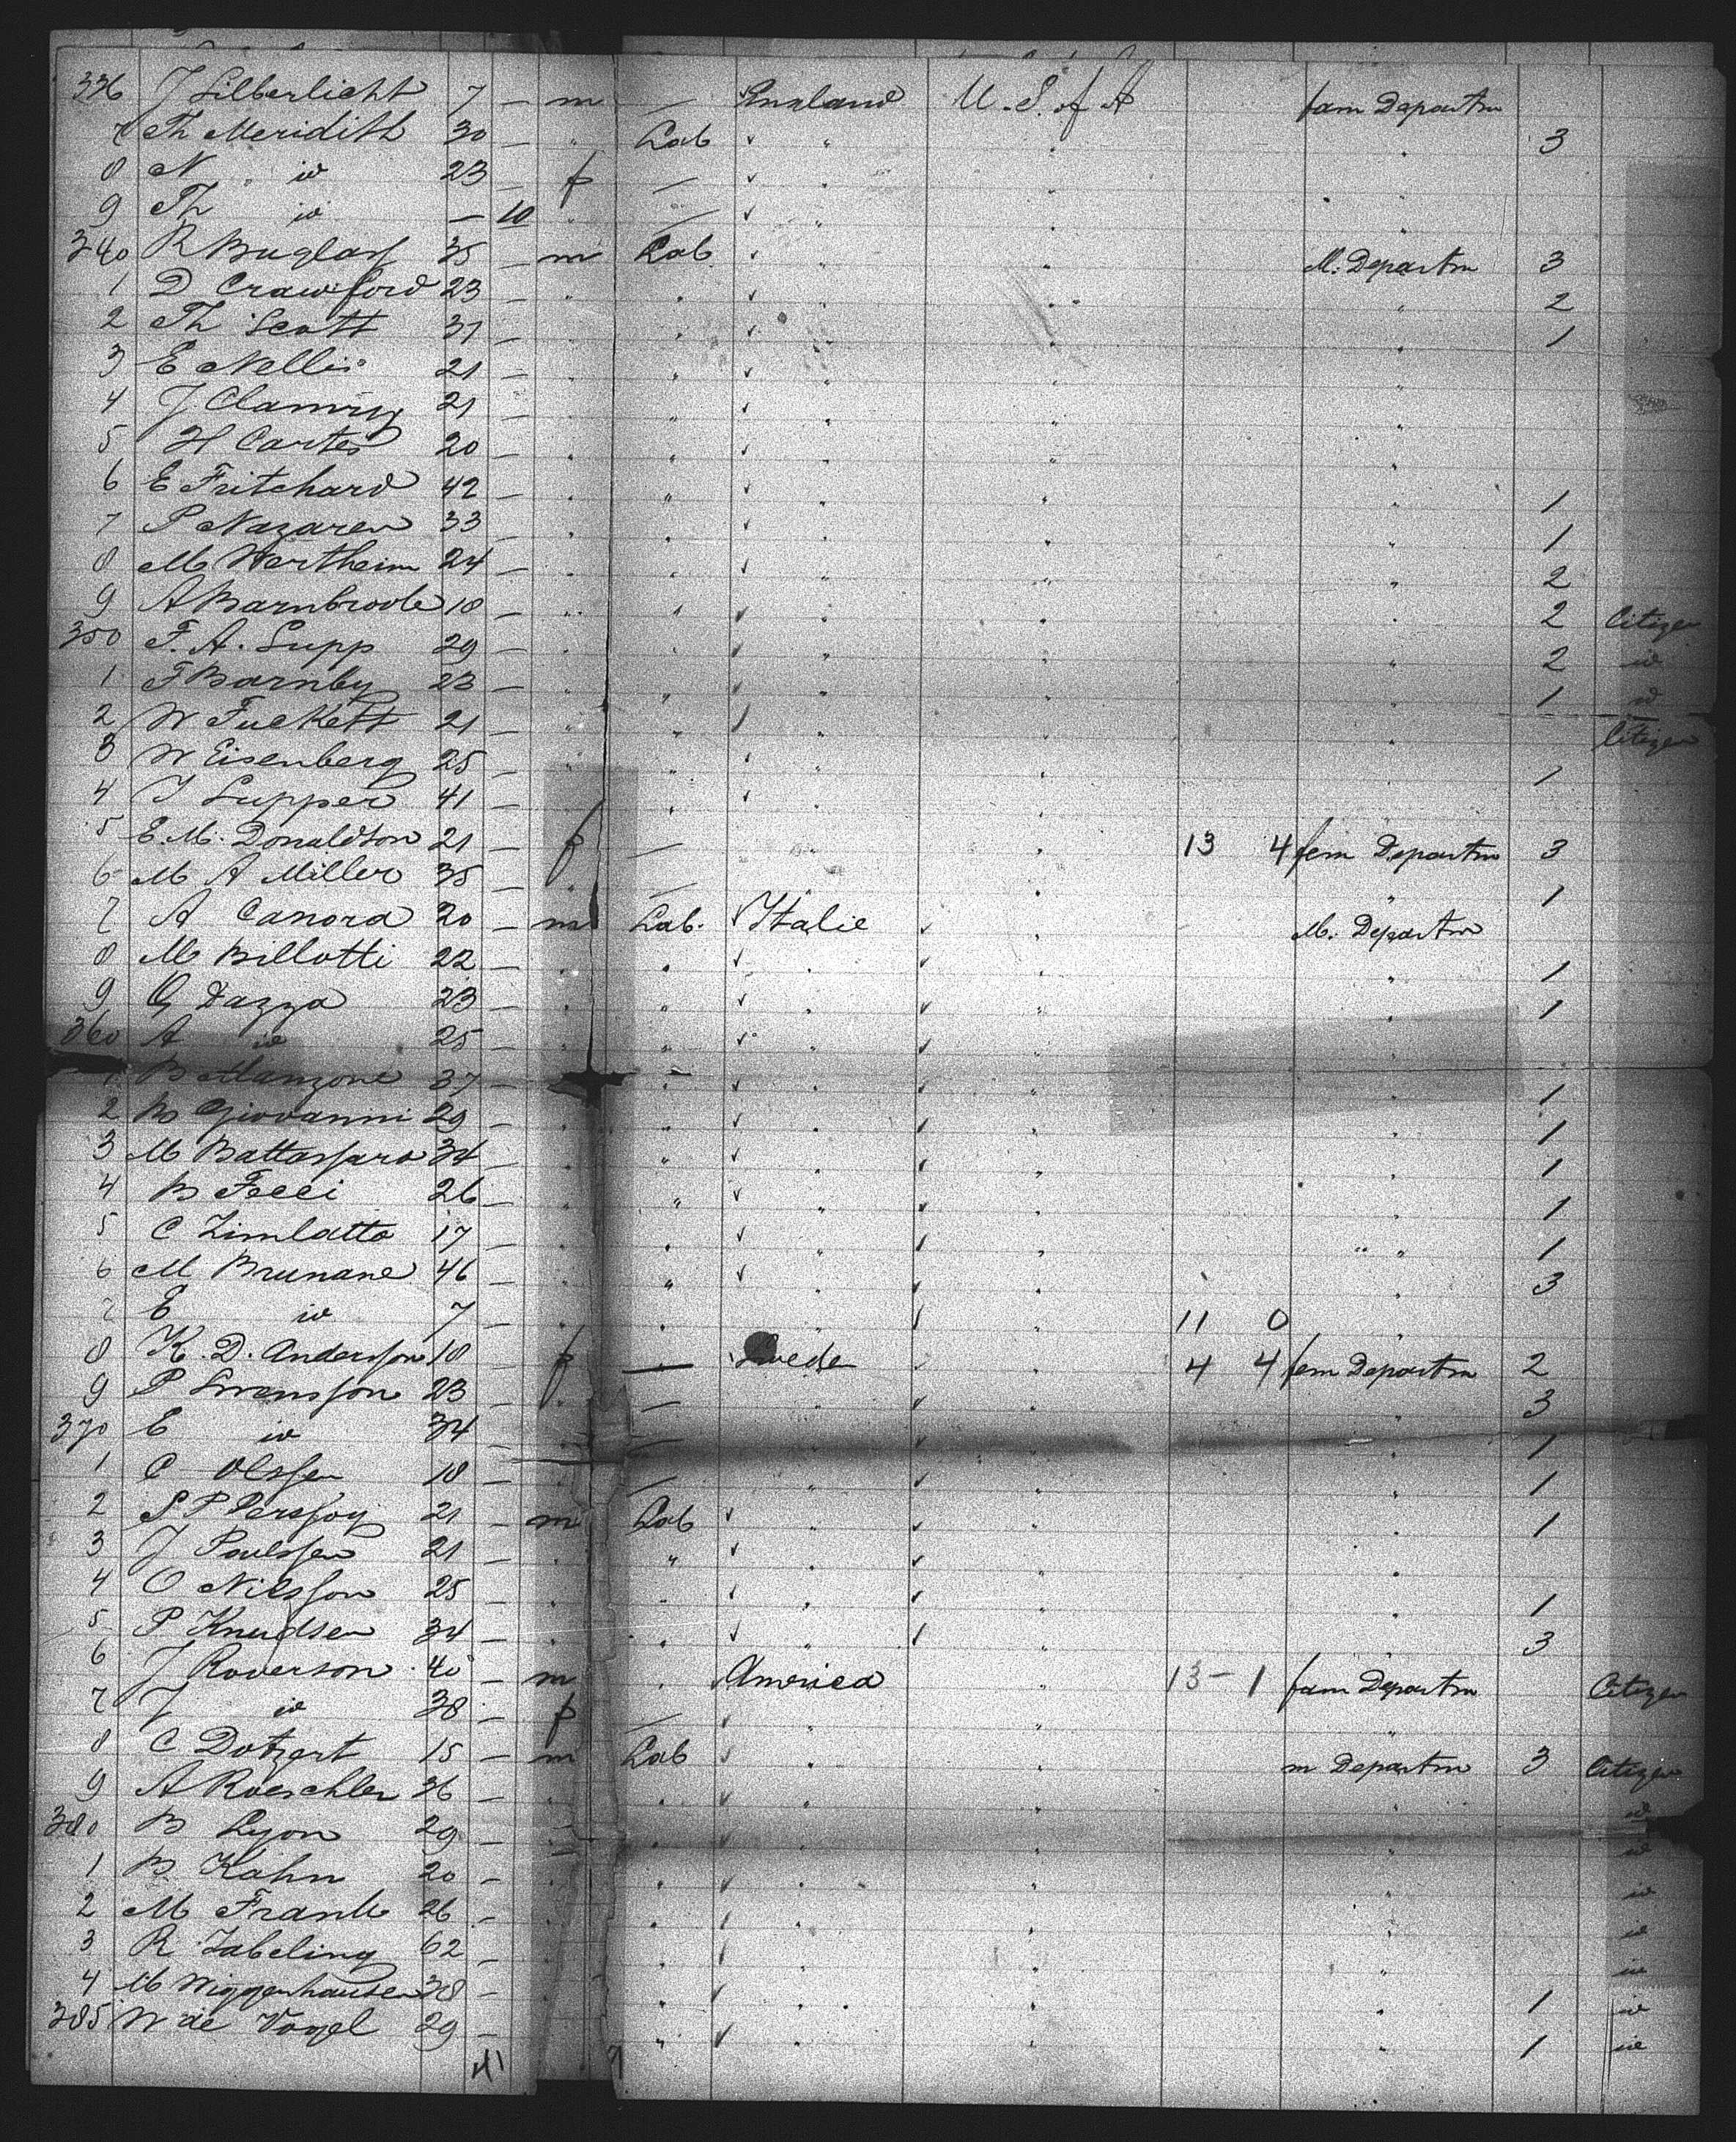 336 J Silberlicht 7 — m — England U. S. of A fam Departm
7 Th Meridith 30 — " Lab " " " 3
8 N " id 23 — f — " " "
9 Th id — 10 " — " " "
340 R Buglass 35 — m Lab " " M. Departm 3
1 D Crawford 23 — " " " " " 2
2 Th Scott 31 — " " " " 1
3 E Nellis 21 — " " " " "
4 J 21 — " " " " "
5 H Carter 20 — " " " " "
6 E Fritchard 42 — " " " " " 1
7 P Nazaren 33 — " " " " " 1
8 M Wertheim 24 — " " " " " 2
9 A Barnbrook 18 — " " " " " 2 Citizen
350 F. A. Supp 29 — " " " " " 2 id
1 F Barnby 23 — " " " " " 1 id
2 W Fuckett 21 — " " " " " Citizen
3 W Eisenberg 25 — " " " " " 1
4 J Supper 41 — " " " " "
5 E. M. Donaldson 21 — f — " " 13 4 fem Departm 3
6 M A Miller 35 — " — " " " 1
7 A Canora 20 — m Lab. Italie " M. Departm
8 M Billotti 22 — " " " " " 1
9 G Dazza 23 — " " " " " 1
360 A id 25 — " " " " "
1 B Manzone 37 — " " " " " 1
2 B Giovanni 29 — " " " " " 1
3 M Battassara 34 — " " " " " 1
4 B Fecci 26 — " " " " " 1
5 C Zimlatto 17 — " " " " " 1
6 M Brunane 46 — " " " " 3
7 E id 7 — " " " " 11 0 "
8 K. D. Andersson 18 — f — Sweden " 4 4 fem Departm 2
9 P Swensson 23 — f — " " " 3
370 E id 34 — " — " " " 1
1 C Olssen 18 — " — " " " 1
2 S P 21 — m Lab " " " 1
3 J Paulssen 21 — " " " " "
4 O Nilsson 25 — " " " " " 1
5 P Knudsen 34 — " " " " 3
6 J Roverson 40 — m " America " 13 – 1 fam Departm Citizen
7 J id 38 — f — " " "
8 C Dotzert 15 — m Lab " " m Departm 3 Citizen
9 A Roeschler 36 — " " " " " id
380 B Lyon 29 — " " " " " id
1 B Kahn 20 — " " " " " id
2 M Frank 26 — " " " " " id
3 R Tabeling 62 — " " " " " id
4 M Wiggenhausen 38 — " " " " " 1 id
385 W de Vogel 29 — " " " " 1 id
41